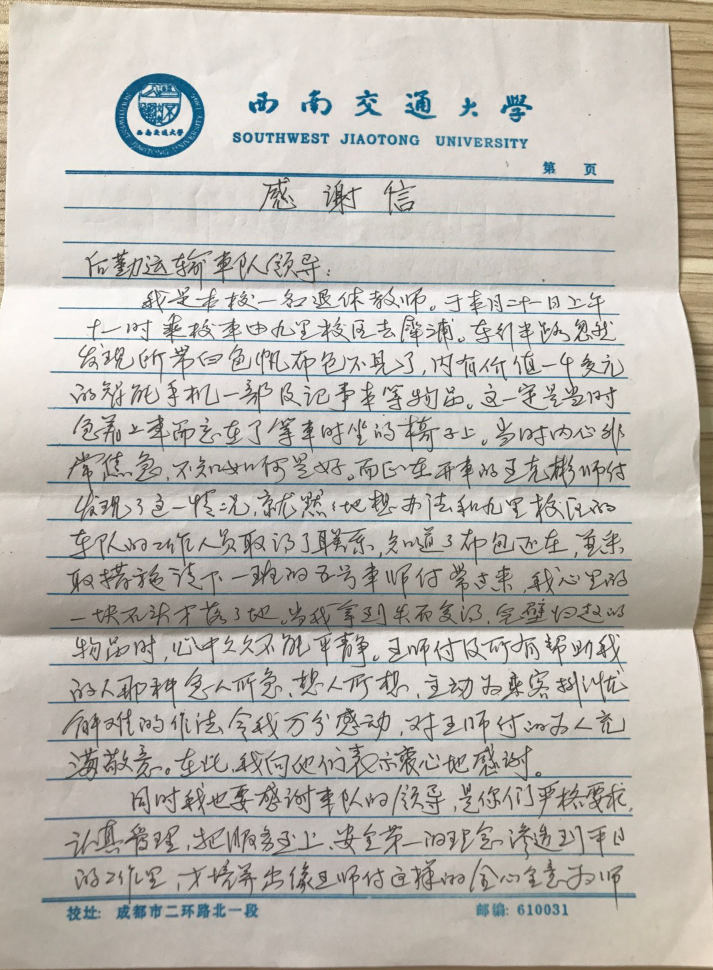 西南交通大學
SOUTHWEST JIAOTONG UNIVERSITY
西南交通大學
SOUTHWEST JIAOTONG UNIVERSITY
第 页
感谢信
后勤运输车队领导：
我是本校一名退休教师。于本月二十一日上午
十一时乘校车由九里校区去犀浦。车行半路忽然
发现所带白色帆布包不见了，内有价值一千多元
的智能手机一部及记事本等物品。这一定是当时
急着上车而忘在了等车时坐的椅子上。当时内心非
常焦急，不知如何是好。而正在开车的王克彬师付
发现了这一情况，就默默地想办法和九里校区的
车队的工作人员取得了联系，知道了布包还在，并采
取措施请下一班的五号车师付带过来，我心里的
一块石头才落了地。当我拿到失而复得，完璧归赵的
物品时，心中久久不能平静。王师付及所有帮助我
的人那种急人所急，想人所想，主动为乘客排忧
解难的作法令我万分感动，对王师付的为人充
满敬意。在此，我向他们表示衷心地感谢。
同时我也要感谢车队的领导，是你们严格要求，
认真管理，把服务至上，安全第一的理念渗透到平日
的工作里，才培养出像王师付这样的全心全意为师
校址: 成都市二环路北一段 邮编: 610031